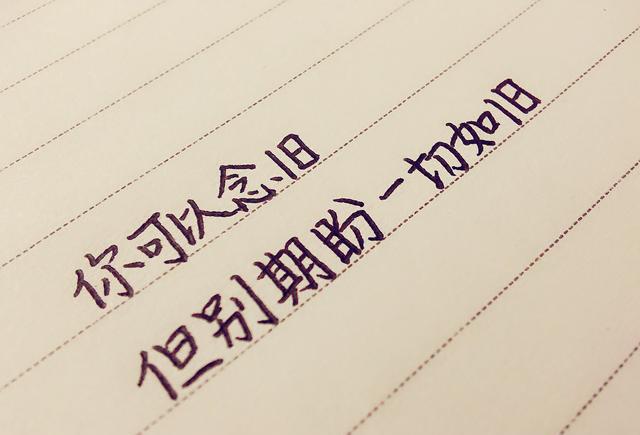 你可以念旧
但别期盼一切如旧